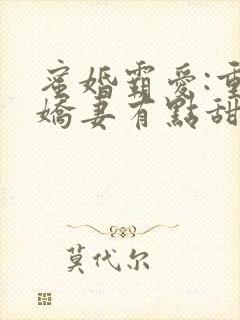 蜜婚霸愛:重
嬌妻有點甜
莫代尔